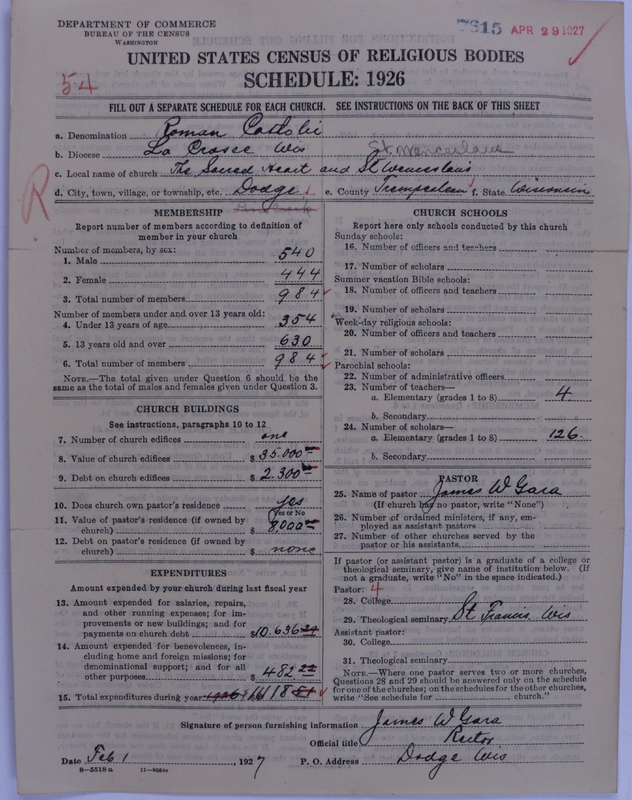 DEPARTMENT OF COMMERCE
BUREAU OF THE CENSUS
WASHINGTON
7615 APR 29 1927
UNITED STATES CENSUS OF RELIGIOUS BODIES
SCHEDULE: 1926
54
FILL OUT A SEPARATE SCHEDULE FOR EACH CHURCH. SEE INSTRUCTIONS ON THE BACK OF THIS SHEET
a. Denomination Roman Catholic
b. Diocese La Crosse Wis
c. Local name of church The Sacred Heart and St Wenceslaus
d. City, town, village, or township, etc. Dodge e. County Trempealeau f. State Wisconsin
R
MEMBERSHIP
Report number of members according to definition of member in your church
Number of members, by sex:
1. Male 540
2. Female 444
3. Total number of members 984
Number of members under and over 13 years old:
4. Under 13 years of age 354
5. 13 years old and over 630
6. Total number of members 984
NOTE.—The total given under Question 6 should be
same as the total of males and females given under Question 3.
CHURCH BUILDINGS
See instructions, paragraphs 10 to 12
7. Number of church edifices one
8. Value of church edifices $ 35.000
9. Debt on church edifices $ 2.300
10. Does church own pastor's residence yes
Yes or No
11. Value of pastor's residence (if owned by
church) $ 8,000
12. Debt on pastor's residence (if owned by
church) $ none
EXPENDITURES
Amount expended by church during last fiscal year
13. Amount expended for salaries, repairs,
and other running expenses; for im-
provements or new buildings; and for
payments on church debt $10.636
14. Amount expended for benevolences, in-
cluding home and foreign missions; for
denominational support; and for all
other purposes $ 482
15. Total expenditures during year 11118
CHURCH SCHOOLS
Report here only schools conducted by this church
Sunday schools:
16. Number of officers and teachers
17. Number of scholars
Summer vacation Bible schools:
18. Number of officers and teachers
19. Number of scholars
Week-day religious schools:
20. Number of officers and teachers
21. Number of scholars
Parochial schools:
22. Number of administrative officers
23. Number of teachers—
a. Elementary (grades 1 to 8) 4
b. Secondary
24. Number of scholars—
a. Elementary (grades 1 to 8) 126
b. Secondary
PASTOR
25. Name of pastor James W Gara
(If church has no pastor, write "None")
26. Number of ordained ministers, if any, em-
ployed as assistant pastors
27. Number of other churches served by the
pastor or his assistants
If pastor (or assistant pastor) is a graduate of a college or
theological seminary, give name of institution below. (If
not a graduate, write "No" in the space indicated.)
Pastor: 4
28. College
29. Theological seminary St Francis, Wis
Assistant pastor:
30. College
31. Theological seminary
NOTE.—Where one pastor serves two or more churches,
Questions 28 and 29 should be answered only on the schedule
for one of the churches; on the schedules for the other churches,
write "See schedule for church."
Signature of person furnishing information James W Gara
Official title Rector
Date Feb 1 1927 P. O. Address Dodge Wis
8—5518a 11—9084a